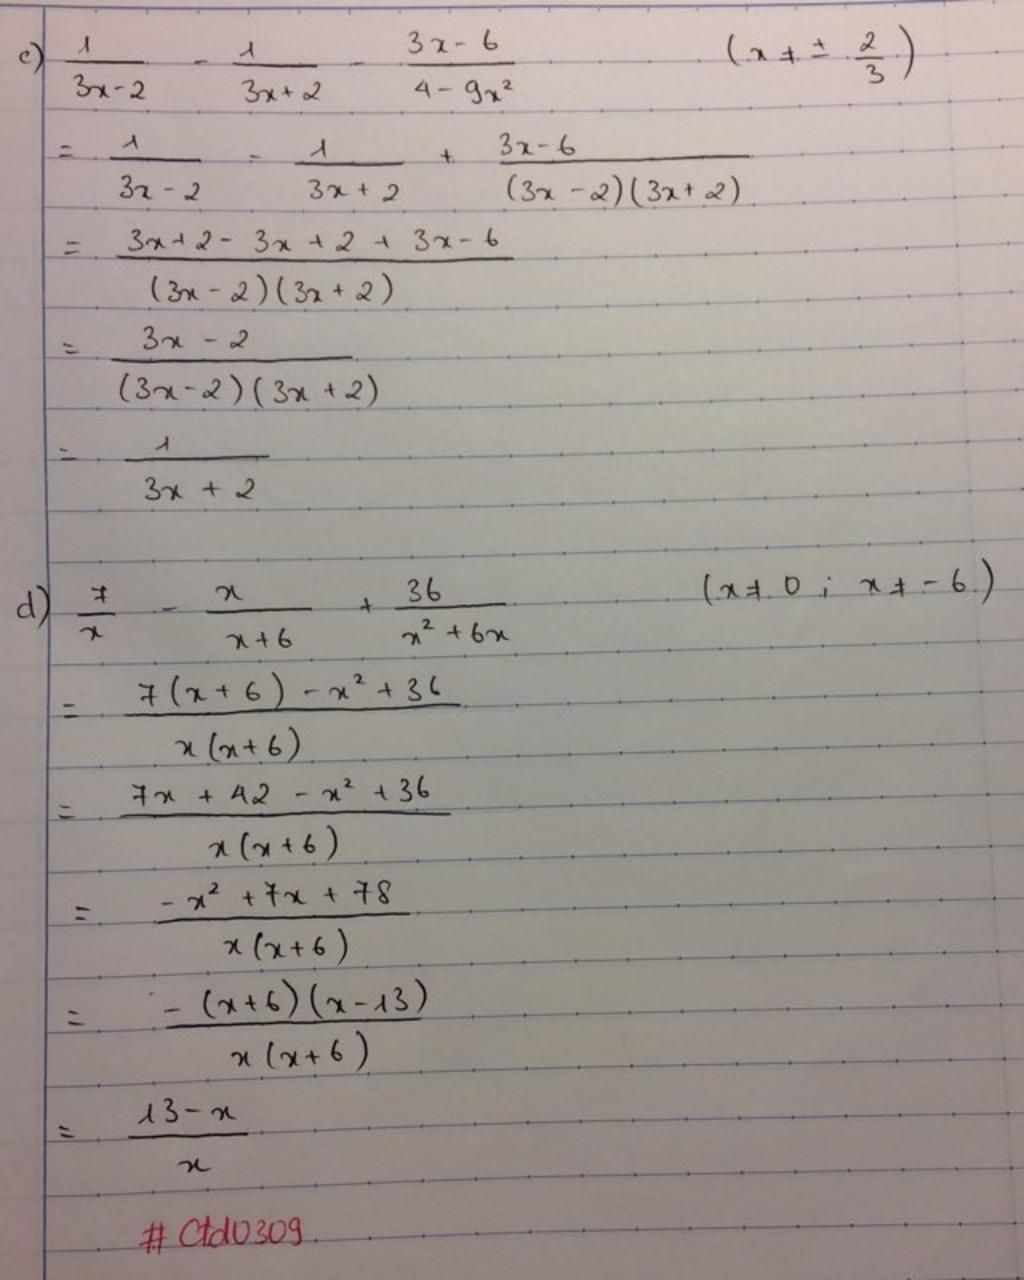 c) 1/(3x-2) - 1/(3x+2) - (3x-6)/(4-9x²) (x ≠ ± 2/3)
= 1/(3x-2) - 1/(3x+2) + (3x-6)/((3x-2)(3x+2))
= (3x+2-3x+2+3x-6)/((3x-2)(3x+2))
= (3x-2)/((3x-2)(3x+2))
= 1/(3x+2)
d) 7/x - x/(x+6) + 36/(x²+6x) (x ≠ 0 ; x ≠ -6)
= (7(x+6)-x²+36)/(x(x+6))
= (7x+42-x²+36)/(x(x+6))
= (-x²+7x+78)/(x(x+6))
= (-(x+6)(x-13))/(x(x+6))
= (13-x)/x
# Ctd0309